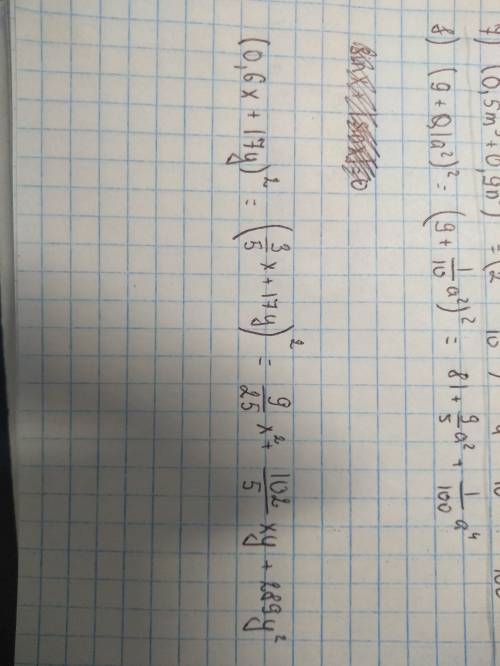 7) (0,5m + 0,9n
8) (9 + 0,1a²)² = (9 + 1/10 a²)² = 81 + 9/5 a² + 1/100 a⁴
(0,6x + 17y)² = (3/5 x + 17y)² = 9/25 x² + 102/5 xy + 289y²